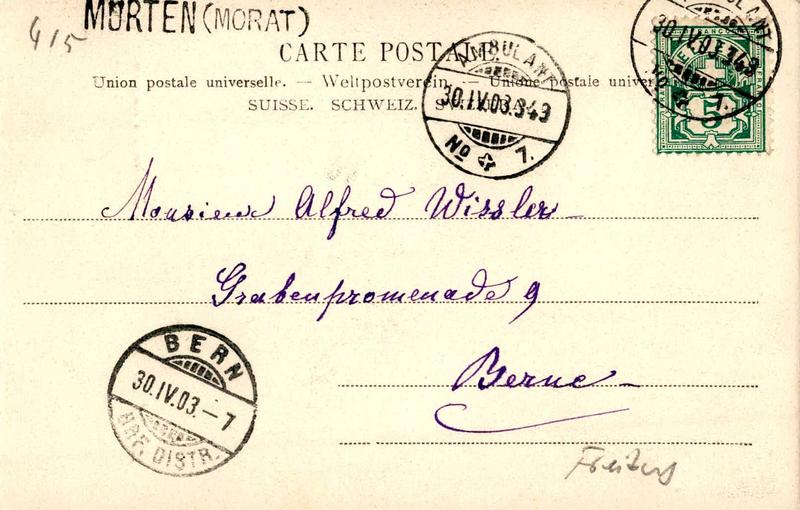 MURTEN (MORAT)
415
CARTE POSTALE.
Union postale universelle. — Weltpostverein. — Unione postale univer
SUISSE. SCHWEIZ. S
AMBULANT
30.IV.03.949
No 7.
AMBULANT
30.IV.03.
No 7.
FRANCO
5
Monsieur Alfred Wissler
Grabenpromenade 9
Berne
BERN
30.IV.03.–7
BRF. DISTR.
Freitag